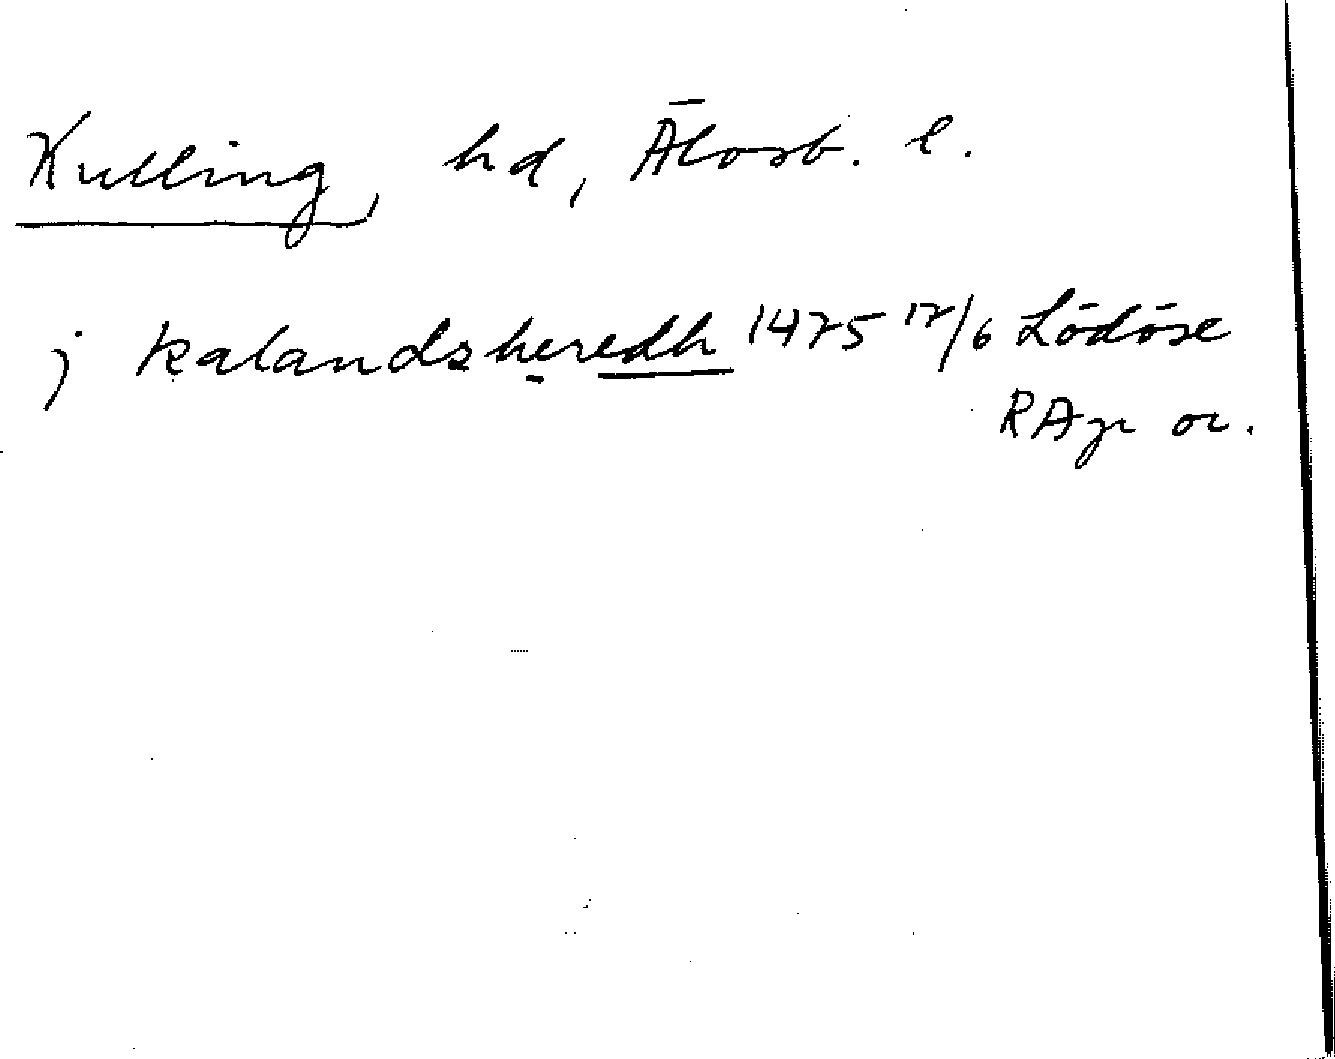 Kulling, hd, Älvsb. l.
j kalandsheredh 1475 12/6 Lödöse
RAp or.